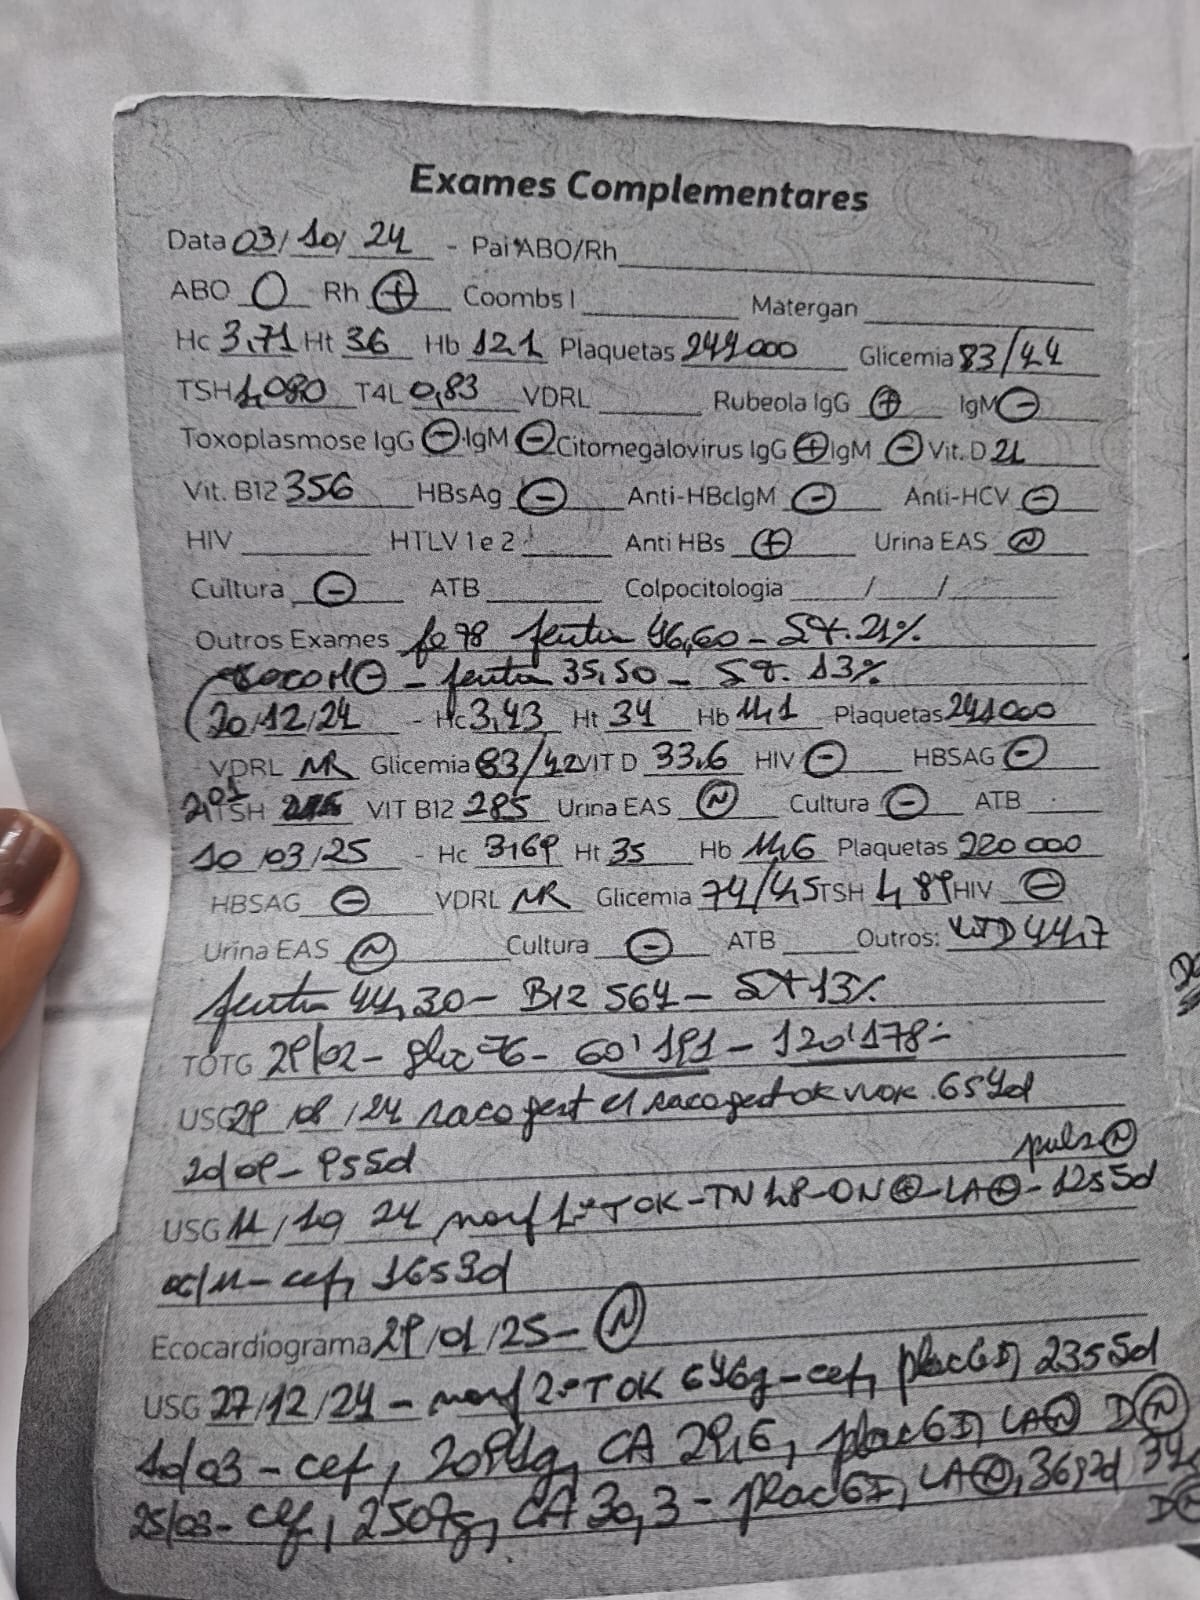 Exames Complementares
Data 03/10/24 - Pai ABO/Rh
ABO O Rh + Coombs I Matergan
Hc 3,71 Ht 36 Hb 12,1 Plaquetas 249000 Glicemia 83/44
TSH 1,080 T4L 0,83 VDRL Rubeola IgG + IgM -
Toxoplasmose IgG - IgM - Citomegalovirus IgG + IgM - Vit. D 21
Vit. B12 356 HBsAg - Anti-HBcIgM - Anti-HCV -
HIV HTLV 1 e 2 Anti HBs + Urina EAS N
Cultura - ATB Colpocitologia / /
Outros Exames fe 78 46,60 - ST. 21%
- 35,50 - ST. 13%
20/12/24 - Hc 3,43 Ht 34 Hb 11,1 Plaquetas 241000
VDRL NR Glicemia 83/42 VIT D 33,6 HIV - HBSAG -
2,01 TSH VIT B12 285 Urina EAS N Cultura - ATB
10/03/25 - Hc 3,69 Ht 35 Hb 11,6 Plaquetas 220000
HBSAG - VDRL NR Glicemia 74/4,5 TSH 1,89 HIV -
Urina EAS N Cultura - ATB Outros: VITD 44,7
44,30 - B12 564 - ST 13%
TOTG 29/02 - glic 76 - 60' 191 - 120' 178 -
USG 29/08/24 saco gest c/ saco gest ok 6s4d
2d/09 - 9s5d
puls N
USG 11/10 24 morf 1º T OK - TN 1,8 - ON + - LA + - 12s5d
06/11 - cef, 16s3d
Ecocardiograma 29/01/25 - N
USG 27/12/24 - morf 2º T OK 646g - cef, plac GI, 23s5d
10/03 - cef, 2094g, CA 29,6, plac GI, LA N D N
25/03 - cef, 2507g, CA 30,3 - plac GI, LA N, 36s2d